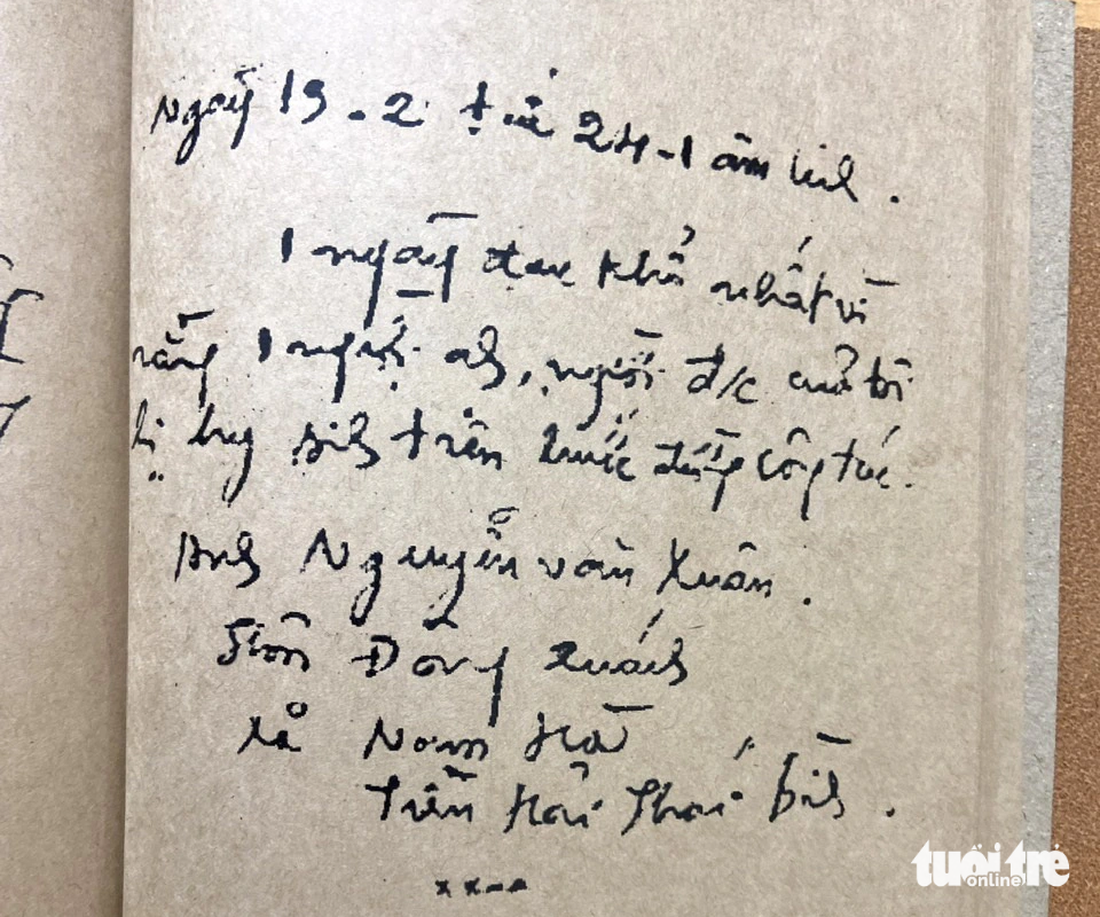 Ngày 19-2 tức 24-1 âm lịch.
1 ngày đau khổ nhất vì
rằng 1 người anh, người đ/c của tôi
bị hy sinh trên bước đường công tác.
Anh Nguyễn văn Xuân.
Thôn Đông Quách
xã Nam Hà
Tiền Hải Thái bình.
tuổi trẻ
online